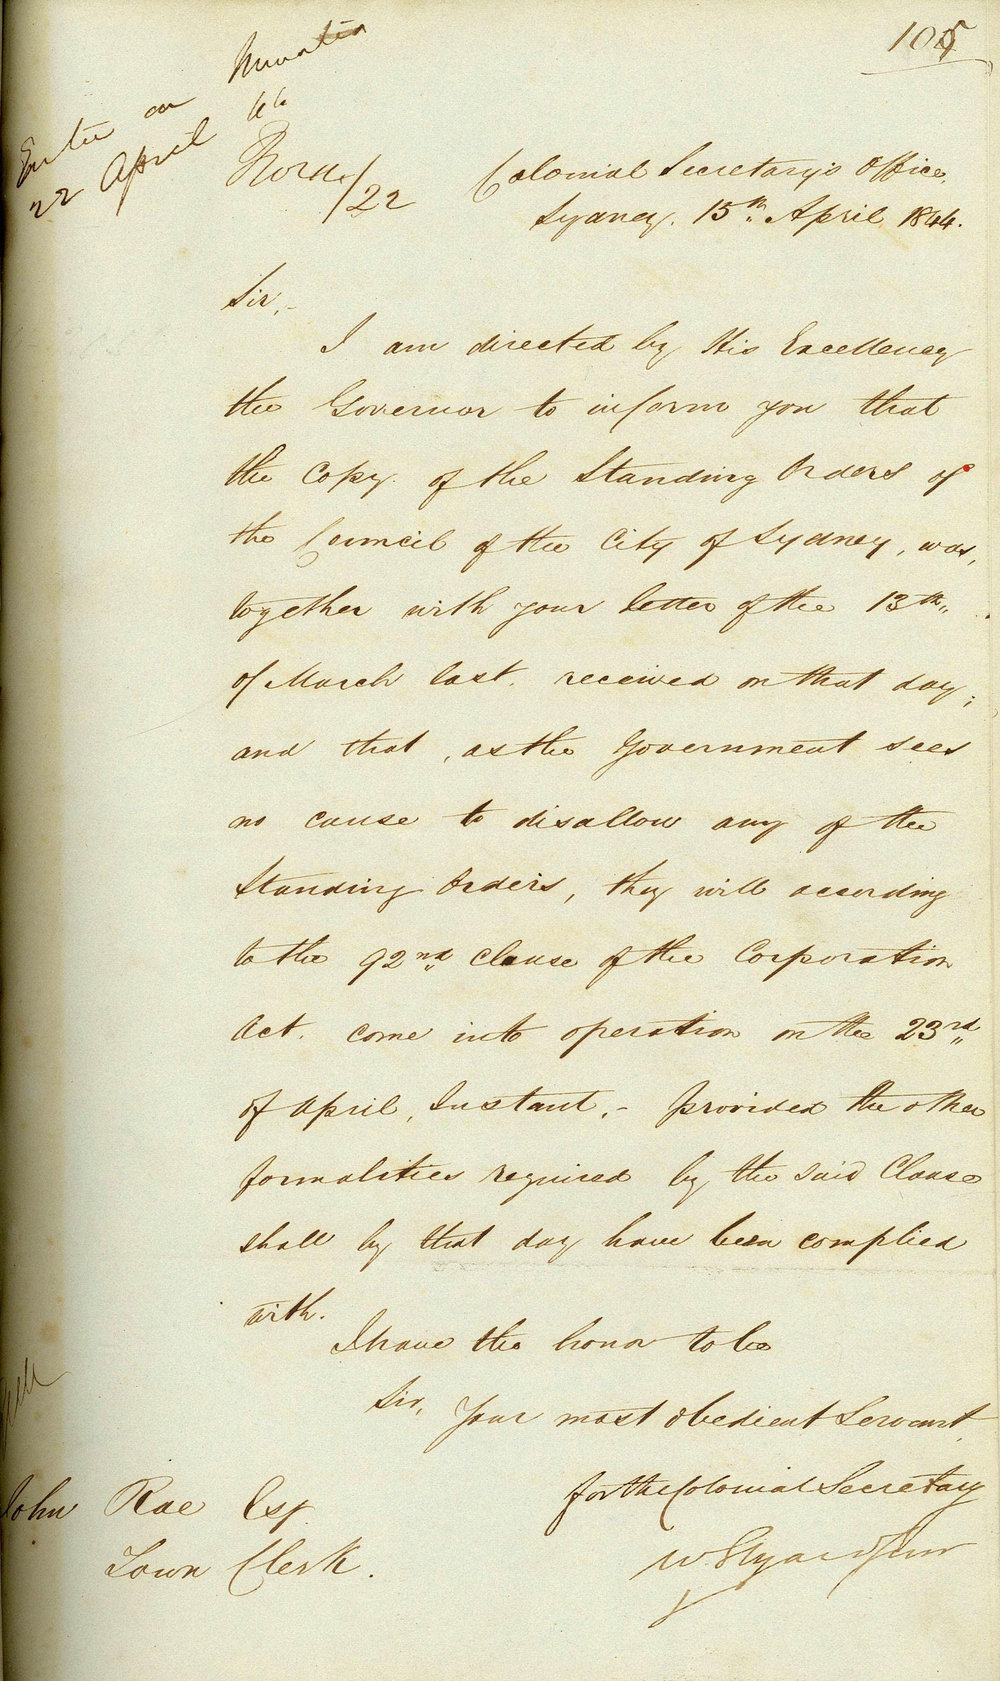 105
Enter on Minutes
22 April
Colonial Secretary's Office,
/22
Sydney. 15th April 1844.
Sir,-
I am directed by His Excellency
the Governor to inform you that
the Copy of the Standing Orders of
the Council of the City of Sydney, was,
together with your letter of the 13th
of March last. received on that day;
and that, as the Government sees
no cause to disallow any of the
Standing Orders, they will according
to the 92nd Clause of the Corporation
Act. come into operation on the 23rd
of April, Instant.- provided the other
formalities required by the said Clause
shall by that day have been complied
with.
I have the honor to be
Sir,
Your most obedient Servant
for the Colonial Secretary
W. Elyard Junr
John Rae Esq
Town Clerk.